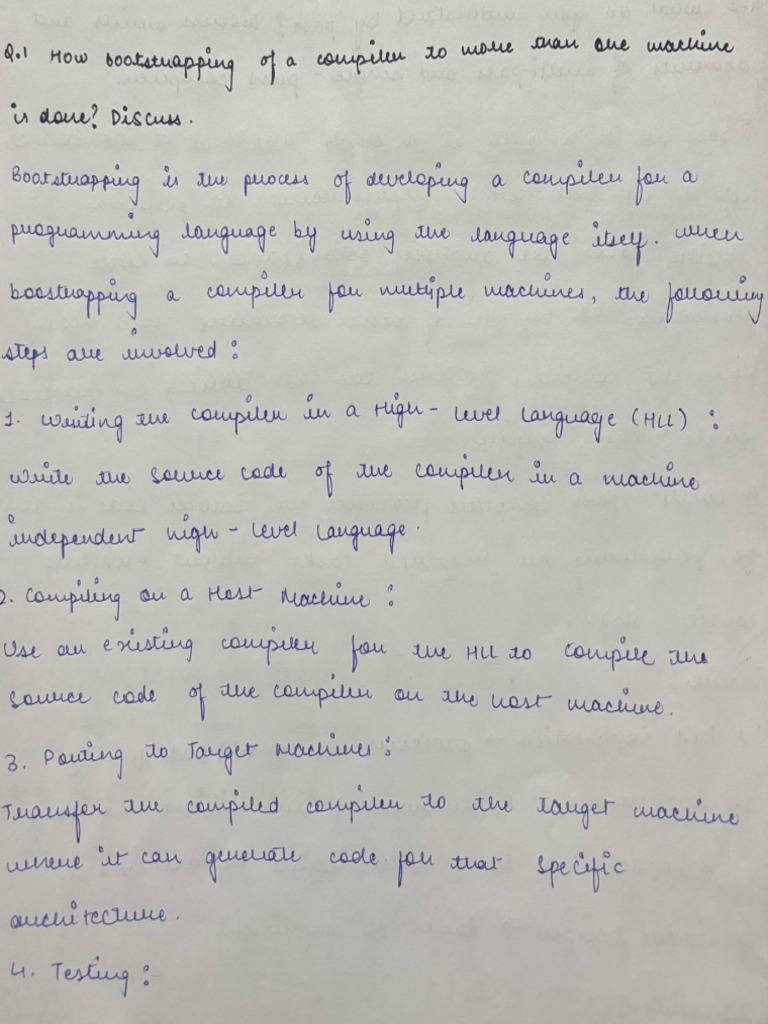 Q.1 How bootstrapping of a compiler to more than one machine
is done? Discuss.
Bootstrapping is the process of developing a compiler for a
programming language by using the language itself. When
boostrapping a compiler for multiple machines, the following
steps are involved :
1. Writing the compiler in a High - Level Language (HLL) :
Write the source code of the compiler in a machine
independent high - level language.
2. Compiling on a Host Machine :
Use an existing compiler for the HLL to compile the
source code of the compiler on the host machine.
3. Porting to Target Machines :
Transfer the compiled compiler to the target machine
where it can generate code for that specific
architecture.
4. Testing :